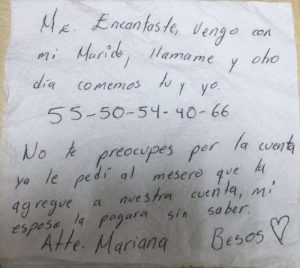 Me. Encantaste, vengo con
mi Marido, llamame y otro
día comemos tu y yo.
55-50-54-40-66
No te preocupes por la cuenta
ya le pedí al mesero que la
agregue a nuestra cuenta, mi
esposo la pagara sin saber.
Atte. Mariana Besos ♡